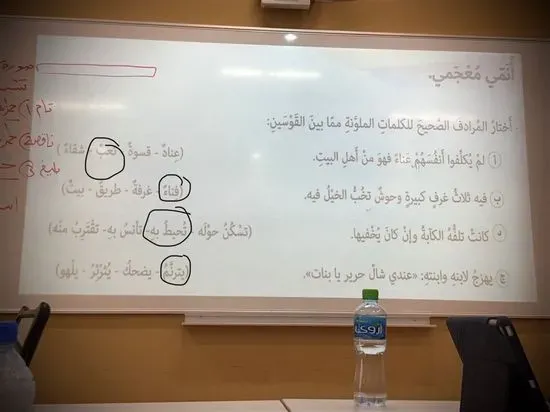 أُنَمّي مُعْجَمي.
أَختارُ المُرادفَ الصَّحيحَ للكلماتِ الملوَّنةِ ممّا بينَ القَوْسَينِ:
أ لمْ يُكلِّفوا أَنفُسَهُمْ عَناءً فهوَ منْ أهلِ البيتِ. (عِنادٌ - قسوةٌ - تعبٌ - شقاءٌ)
ب فيه ثلاثُ غرفٍ كبيرةٍ وحوشٌ تَخُبُّ الخيلُ فيه. (فِناءٌ - غرفةٌ - طريقٌ - بيتٌ)
د كانتْ تلفُّهُ الكآبةُ وإنْ كانَ يُخْفيها. (تسْكُنُ حوْلَه - تُحيطُ بهِ - تأنسُ بهِ - تقْتَرِبُ منْه)
ج يهزجُ لابنِهِ وابنتِهِ: «عندي شالْ حرير يا بنات». (يترنَّمُ - يضحكُ - يُثَرْثِرُ - يلْهو)
صورة
تام ①
ناقصة
بليغ ③
أروى